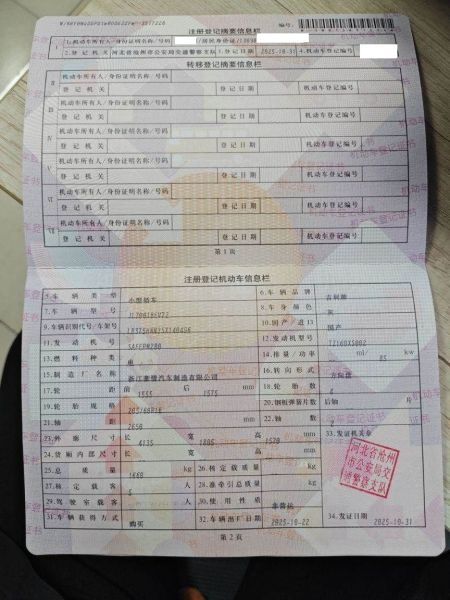 注册登记摘要信息栏
编号:
I 1.机动车所有人/身份证明名称/号码 /居民身份证/
2.登记机关 河北省沧州市公安局交通警察支队 3.登记日期 2025-10-31 4.机动车登记编号
转移登记摘要信息栏
II 机动车所有人/身份证明名称/号码
登记机关 登记日期 机动车登记编号
III 机动车所有人/身份证明名称/号码
登记机关 登记日期 机动车登记编号
IV 机动车所有人/身份证明名称/号码
登记机关 登记日期 机动车登记编号
V 机动车所有人/身份证明名称/号码
登记机关 登记日期 机动车登记编号
VI 机动车所有人/身份证明名称/号码
登记机关 登记日期 机动车登记编号
VII 机动车所有人/身份证明名称/号码
登记机关 登记日期 机动车登记编号
第1页
注册登记机动车信息栏
5.车辆类型 小型轿车 6.车辆品牌
7.车辆型号 8.车身颜色 灰
9.车辆识别代号/车架号 10.国产/进口 国产
11.发动机号 12.发动机型号
13.燃料种类 电 14.排量/功率 ml/ 85 kw
15.制造厂名称 浙江豪情汽车制造有限公司 16.转向形式 方向盘
17.轮距 前 1555 后 1575 mm 18.轮胎数 4
19.轮胎规格 205/60R16 20.钢板弹簧片数 后轴 片
21.轴距 2650 mm 22.轴数 2
23.外廓尺寸 长 4135 宽 1805 高 1570 mm 33.发证机关章
24.货厢内部尺寸 长 宽 高 mm
25.总质量 kg 26.核定载质量 kg
27.核定载客 5 人 28.准牵引总质量 kg
29.驾驶室载客 人 30.使用性质 非营运
31.车辆获得方式 购买 32.车辆出厂日期 2025-10-22 34.发证日期 2025-10-31
河北省沧州
市公安局交
通警察支队
第2页